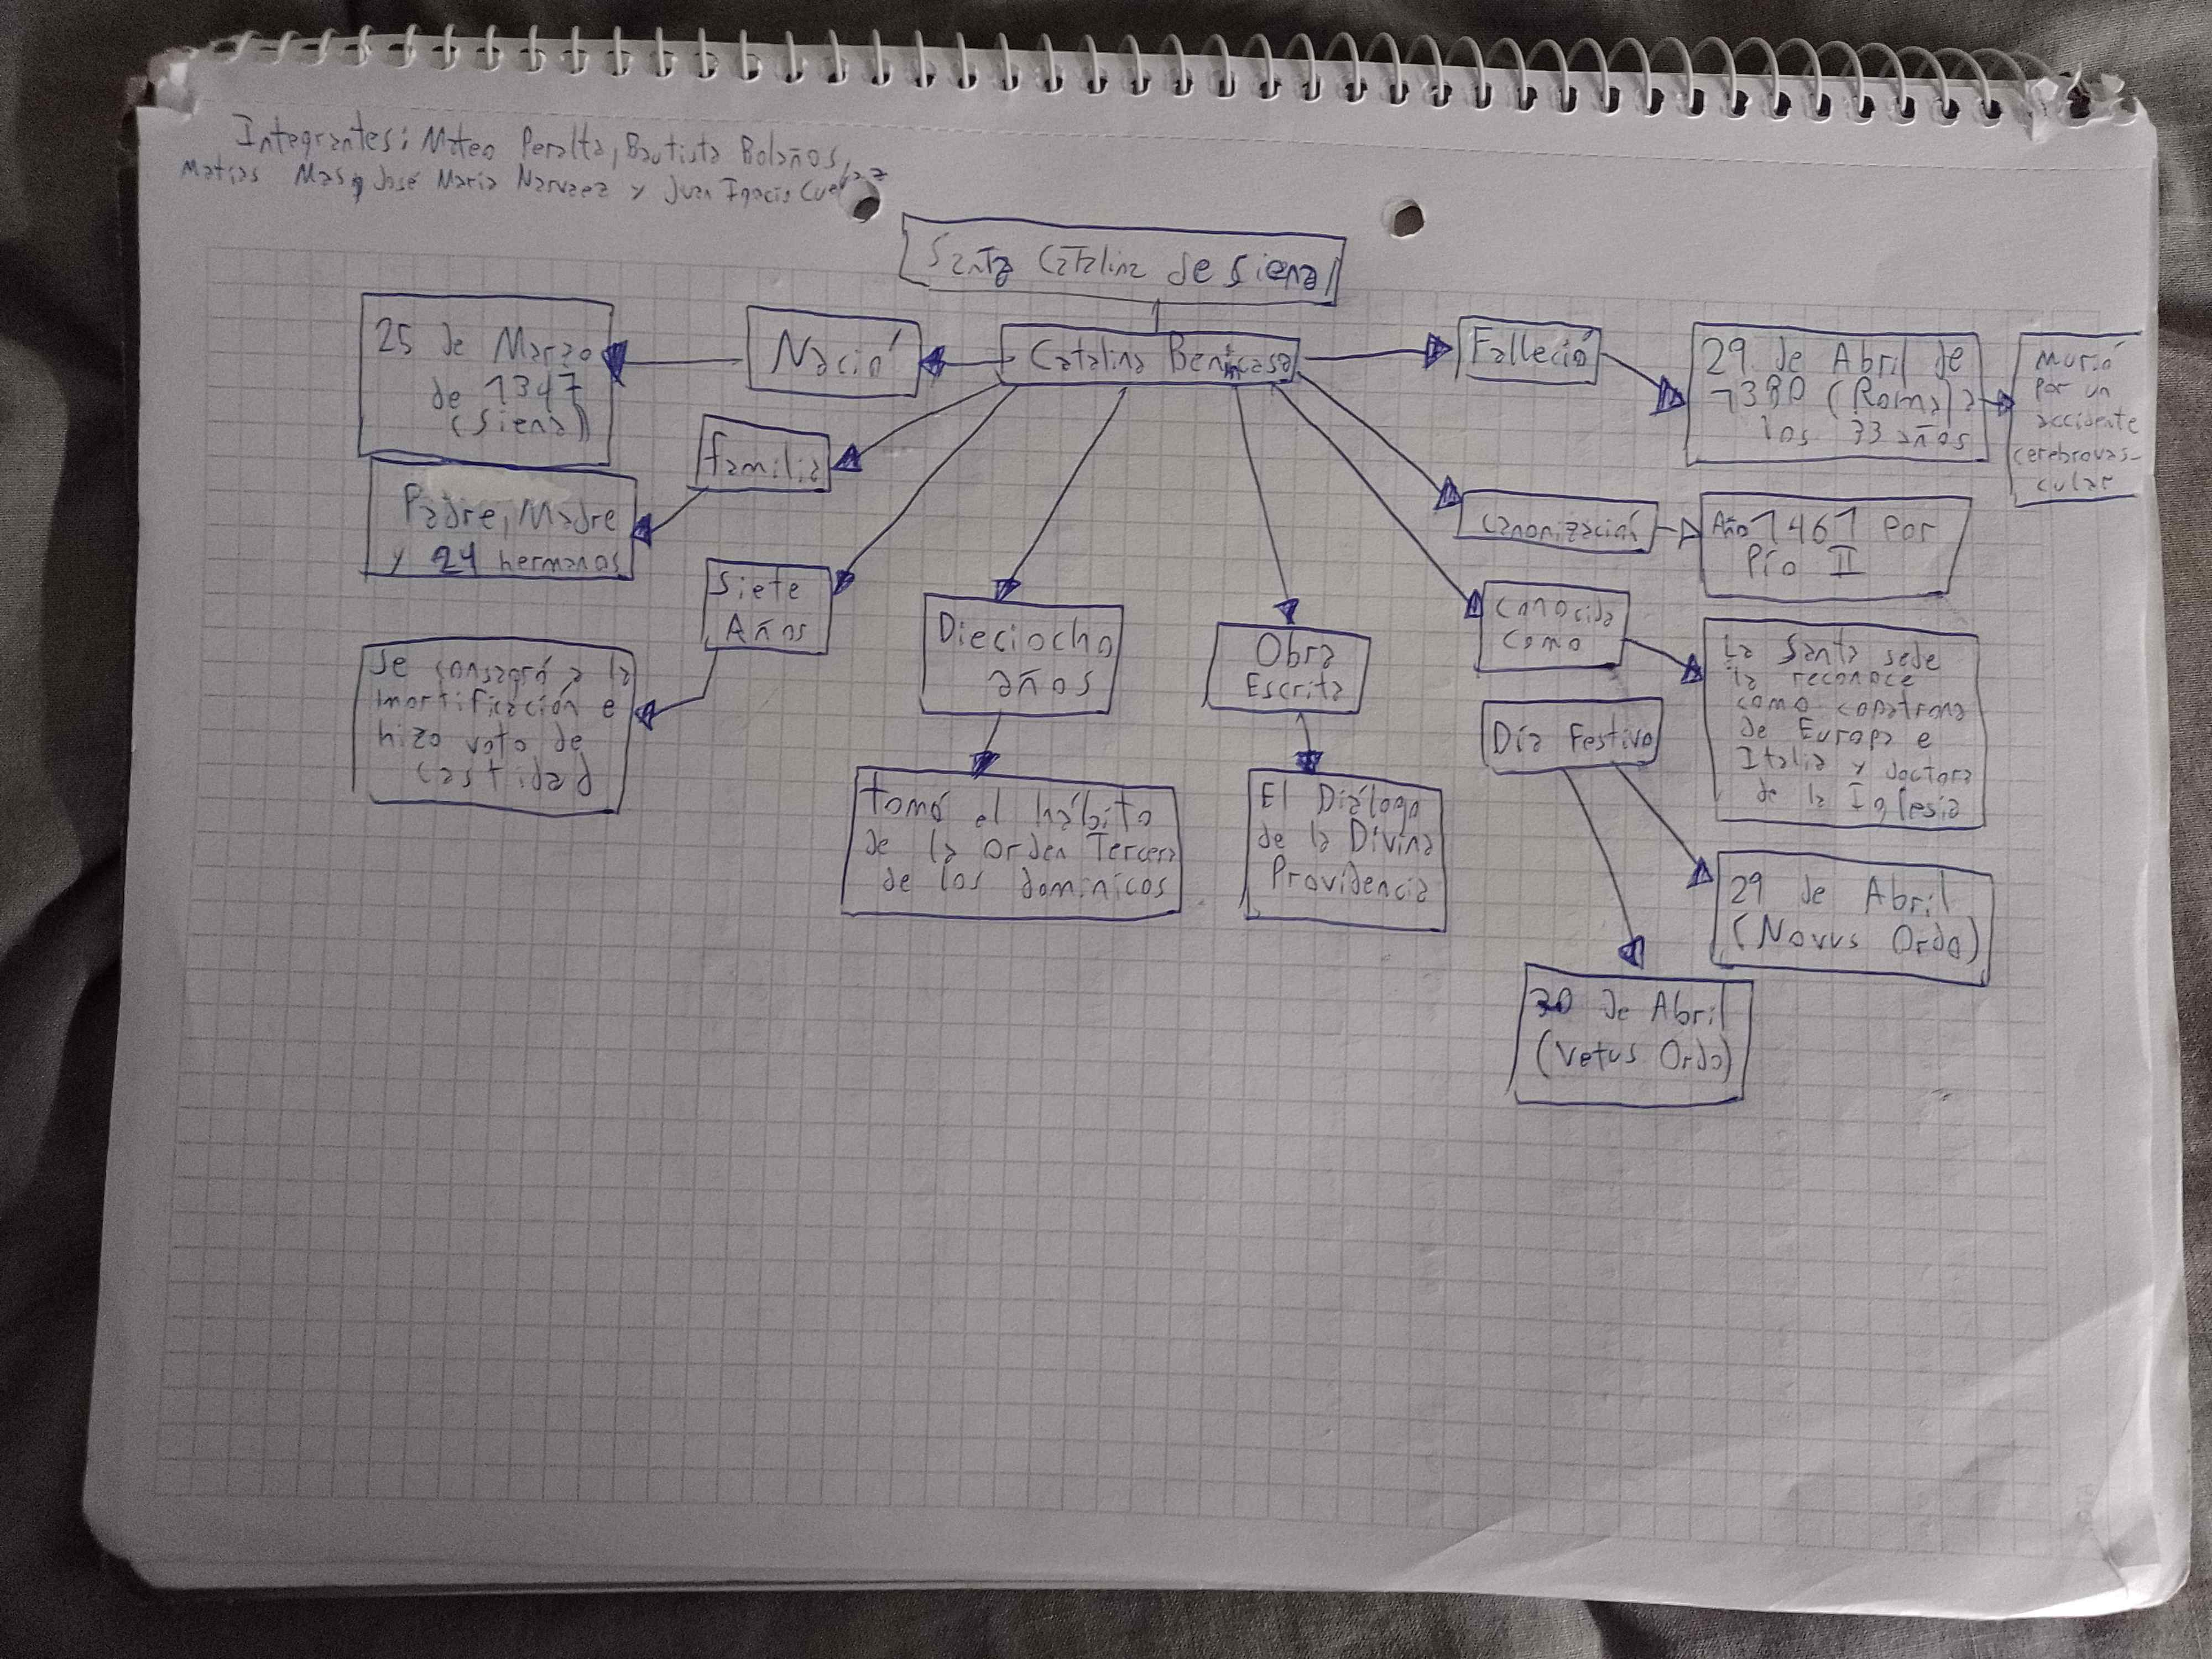 Integrantes: Mateo Peralta, Bautista Bolaños,
Matías Mas, José María Narvaez y Juan Ignacio
Santa Catalina de Siena
Catalina Benincasa
Nació
25 de Marzo
de 1347
(Siena)
familia
Padre, Madre
y 24 hermanos
Siete
Años
Se consagró a la
mortificación e
hizo voto de
castidad
Dieciocho
años
tomó el hábito
de la Orden Tercera
de los dominicos
Obra
Escrita
El Diálogo
de la Divina
Providencia
Falleció
29 de Abril de
1380 (Roma) a
los 33 años
murió
por un
accidente
cerebrovas-
cular
canonización
Año 1461 por
Pío II
conocida
como
La Santa sede
la reconoce
como copatrona
de Europa e
Italia y doctora
de la Iglesia
Día Festivo
29 de Abril
(Novus Ordo)
30 de Abril
(Vetus Ordo)